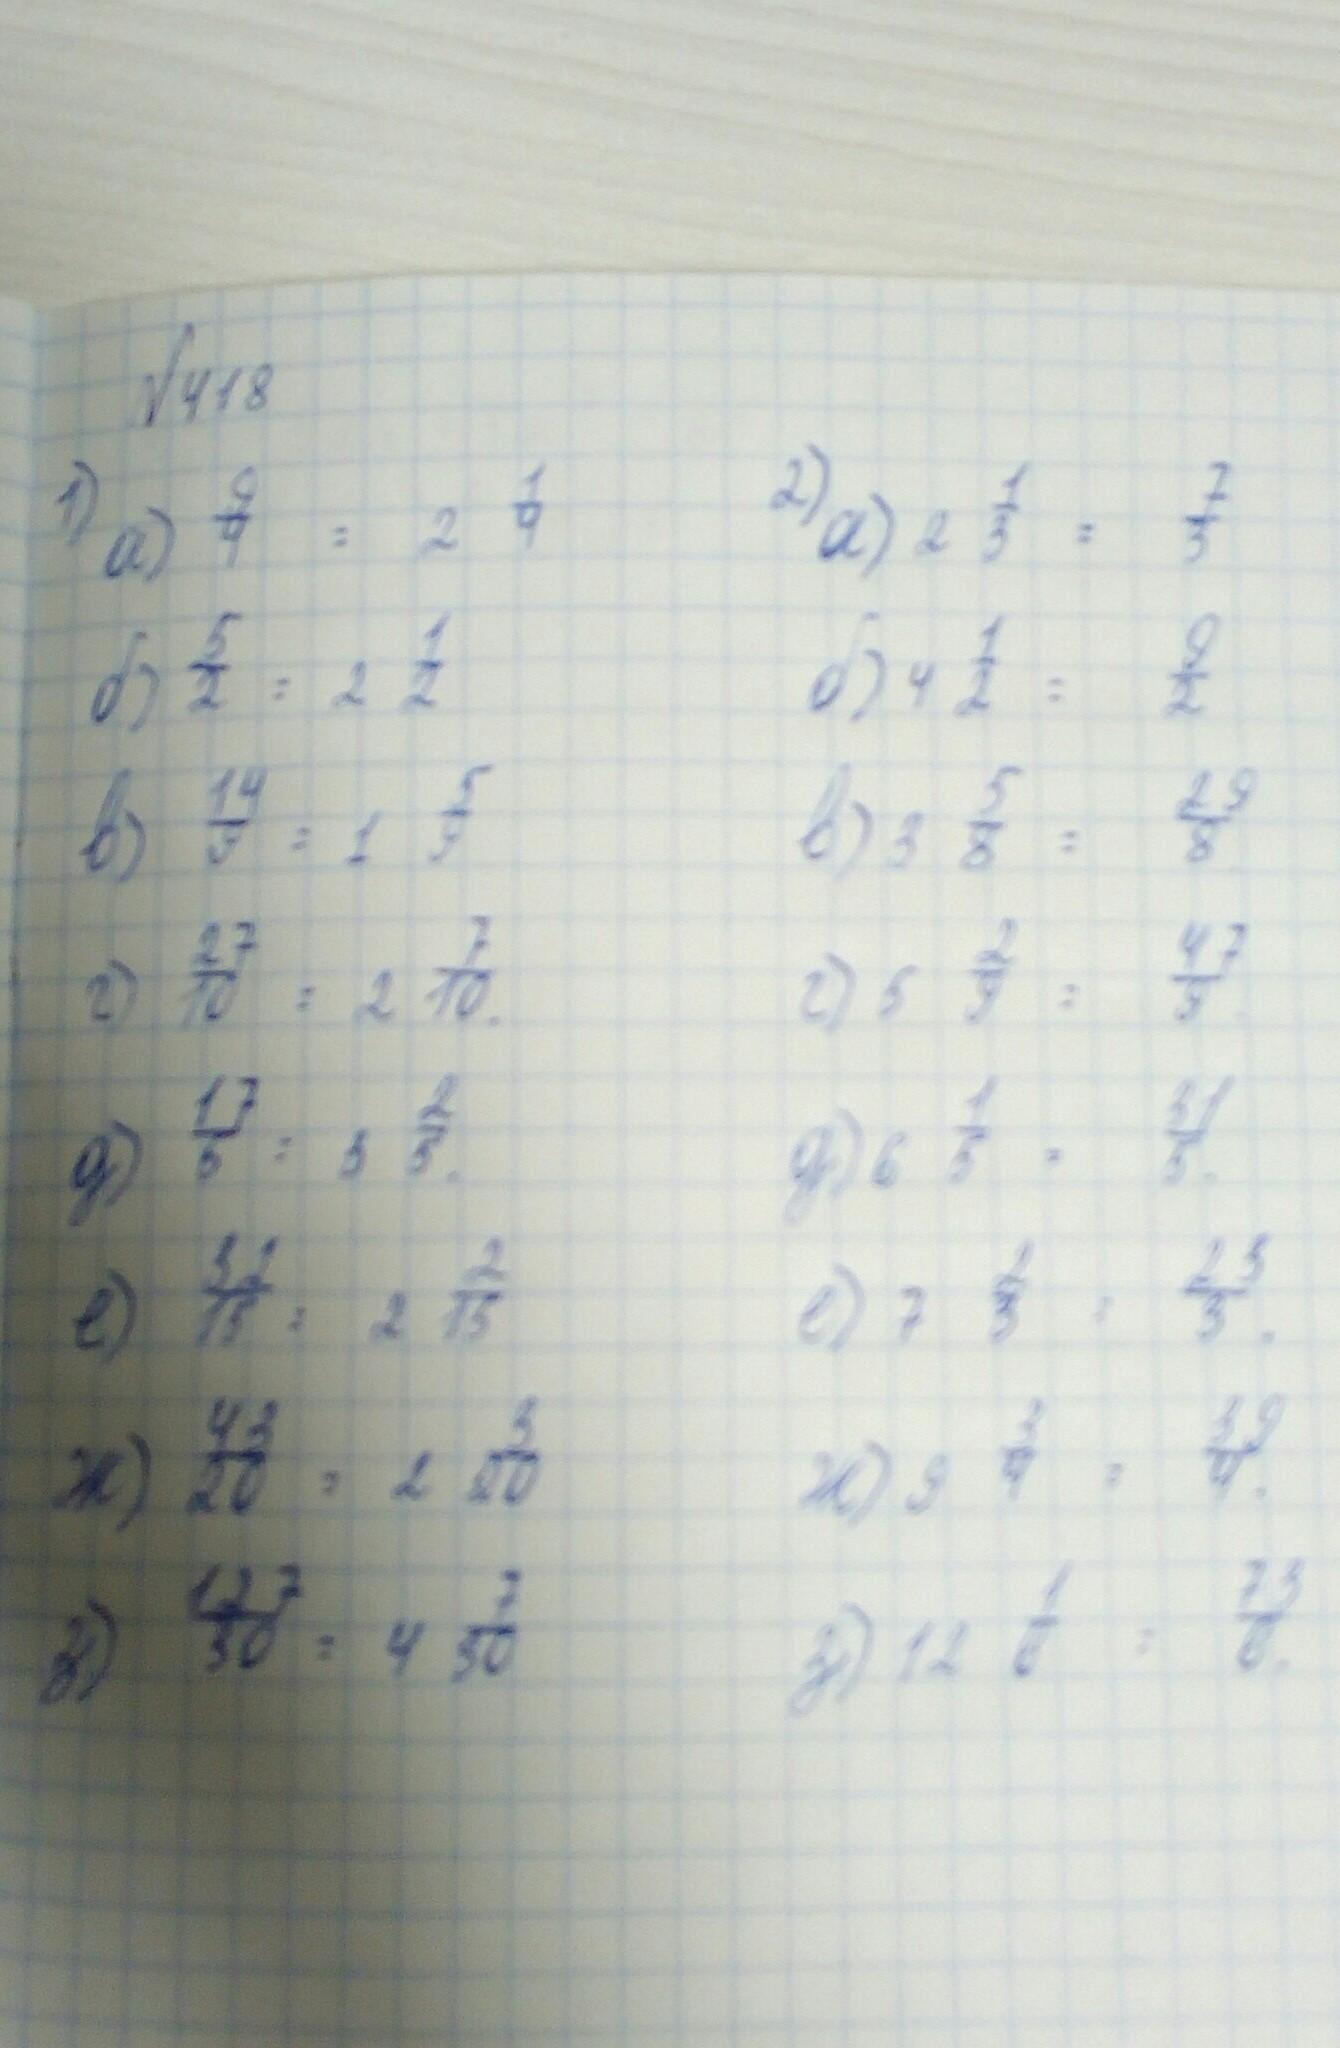 №418
1) а) 9/4 = 2 1/4
б) 5/2 = 2 1/2
в) 14/9 = 1 5/9
г) 27/10 = 2 7/10.
д) 17/5 = 3 2/5.
е) 32/15 = 2 2/15
ж) 43/20 = 2 3/20
з) 127/30 = 4 7/30
2) а) 2 1/3 = 7/3
б) 4 1/2 = 9/2
в) 3 5/8 = 29/8.
г) 5 2/9 = 47/9.
д) 6 1/5 = 31/5.
е) 7 2/3 = 23/3.
ж) 9 3/4 = 39/4.
з) 12 1/6 = 73/6.